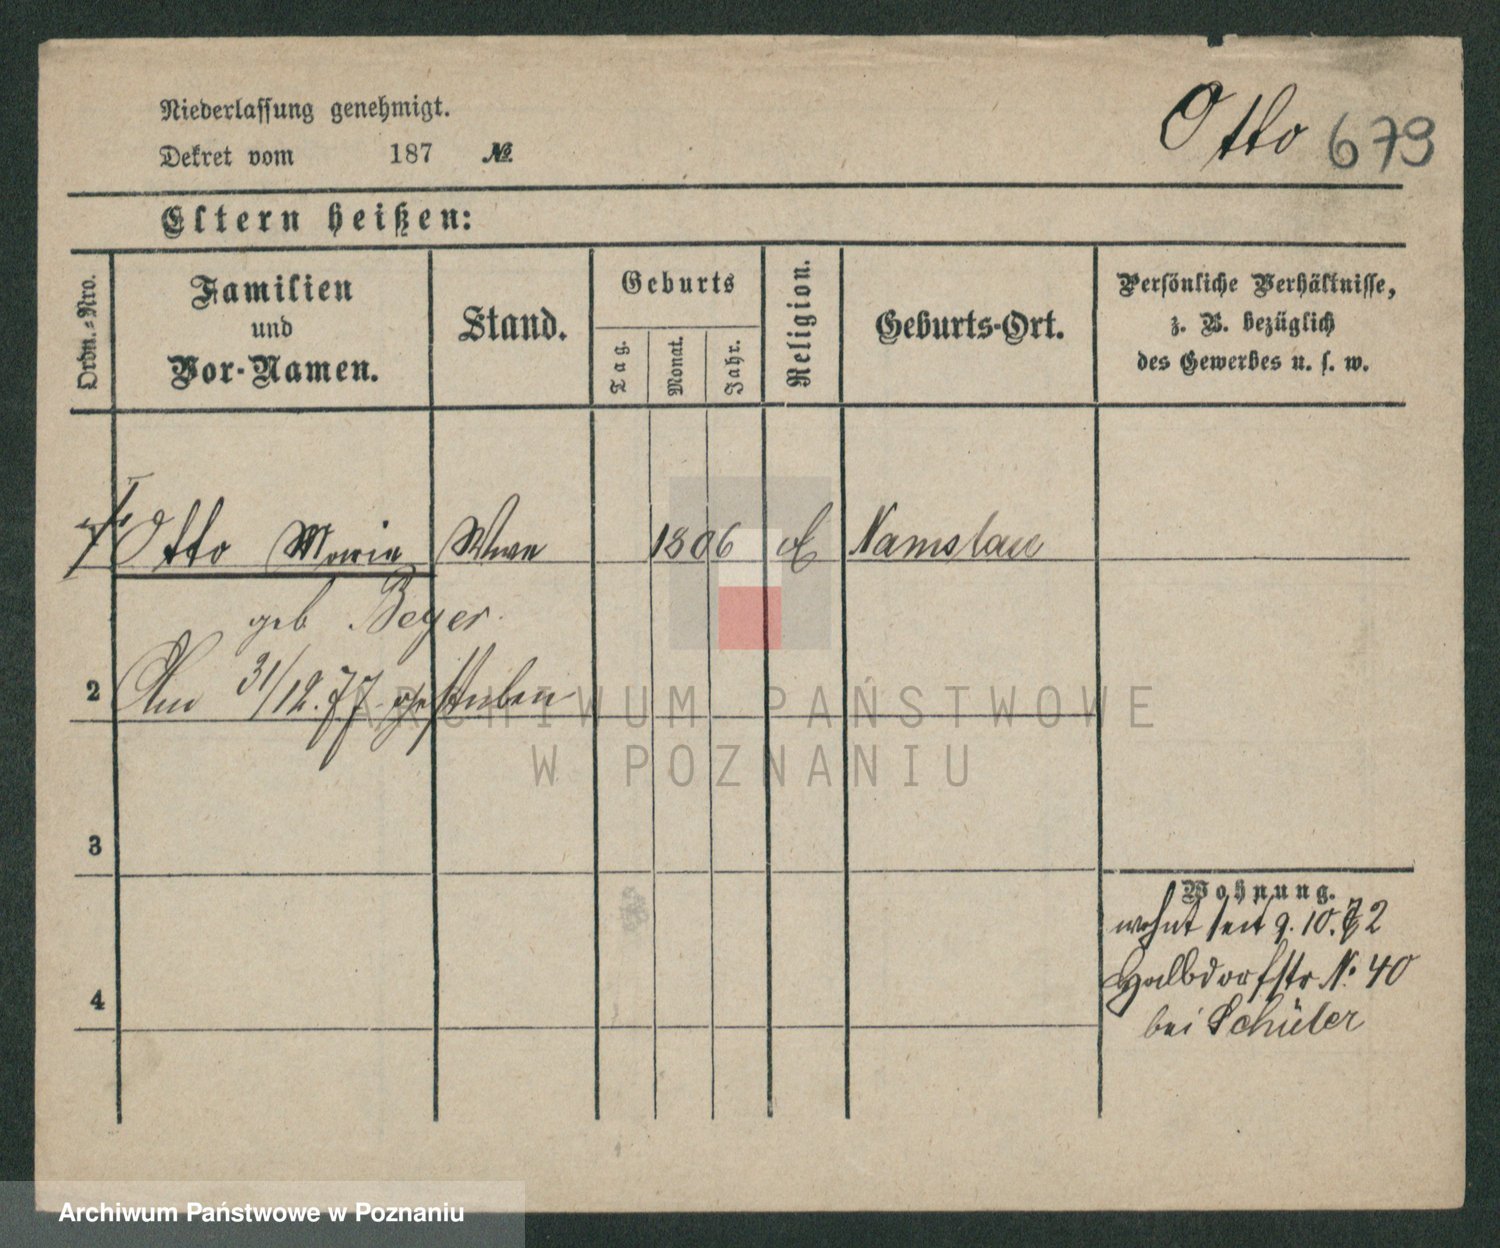 Otto 679
Niederlassung genehmigt.
Dekret vom 187 №
Eltern heißen:
Ordn.-Nro.
Familien
und
Vor-Namen.
Stand.
Geburts
Tag.
Monat.
Jahr.
Religion.
Geburts-Ort.
Persönliche Verhältnisse,
z. B. bezüglich
des Gewerbes u. s. w.
Otto Marie Wwe 1806 Namslau
geb Beyer
2 Am 31/12.77 gestorben
ARCHIWUM PAŃSTWOWE
W POZNANIU
3
Wohnung.
wohnt seit 9.10.72
Halbdorfstr N. 40
bei Schüler
4
Archiwum Państwowe w Poznaniu